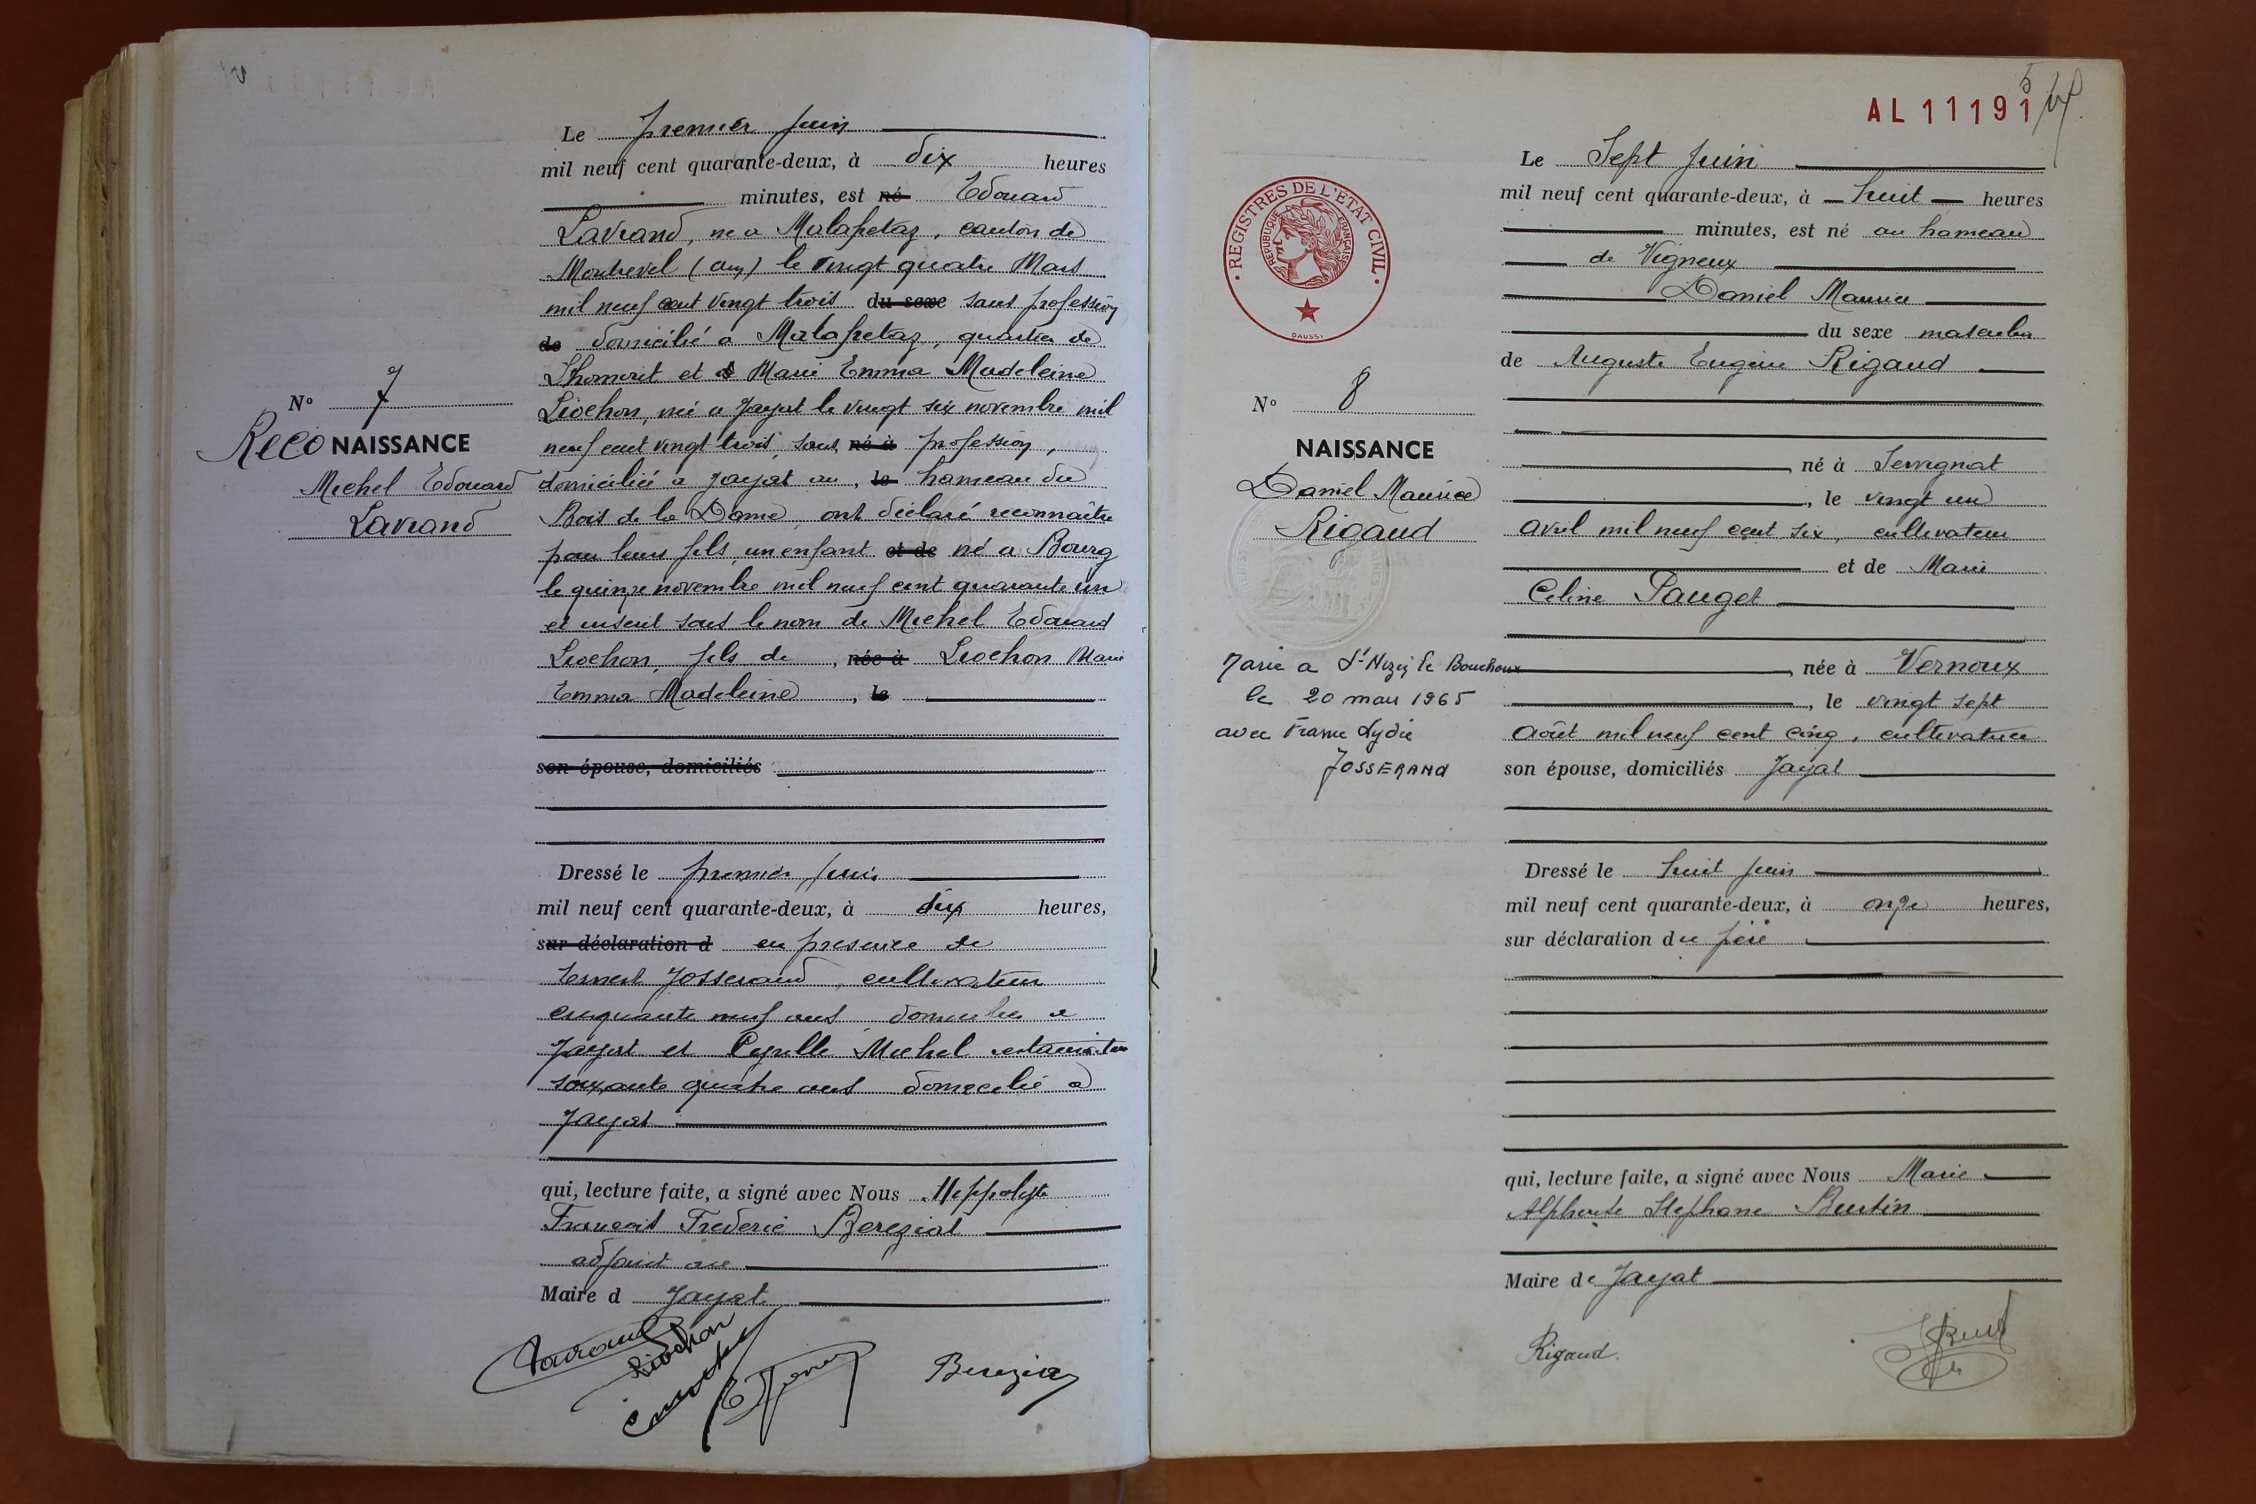 Le premier juin
mil neuf cent quarante-deux, à dix heures
minutes, est né Edouard
Lavrand, né a Malafretaz, canton de
Montrevel (Ain) le vingt quatre Mars
mil neuf cent vingt trois du sexe sans profession
de domicilié a Malafretaz, quartier de
et Marie Emma Madeleine
Liochon, née a Jayat le vingt six novembre mil
neuf cent vingt trois, sans né à profession,
domiciliée a Jayat au, le hameau du
Bois de la Dame, ont déclaré reconnaître
pour leurs fils, un enfant et de né a Bourg
le quinze novembre mil neuf cent quarante un
et inscrit sous le nom de Michel Edouard
Liochon, fils de, née à Liochon Marie
Emma Madeleine, le
son épouse, domiciliés
Dressé le premier juin
mil neuf cent quarante-deux, à dix heures,
sur déclaration d en presence de
Ernest Josserand, cultivateur
cinquante neuf ans domicilié a
Jayat et Cyrille Michel
soixante quatre ans domicilié a
Jayat
qui, lecture faite, a signé avec Nous Hippolyte
François Frederic Bereziat
adjoint au
Maire d Jayat
N° 7
RecoNAISSANCE
Michel Edouard
Lavrand
Lavrand
Liochon
Bereziat
AL 11191
5
REGISTRES DE L'ÉTAT CIVIL
RÉPUBLIQUE FRANÇAISE
DAUSSY
N° 8
NAISSANCE
Daniel Maurice
Rigaud
Marié a St Nizier le Bouchoux
le 20 mars 1965
avec France Lydie
JOSSERAND
Le Sept juin
mil neuf cent quarante-deux, à huit heures
minutes, est né au hameau
de Vigneux
Daniel Maurice
du sexe masculin
de Auguste Eugène Rigaud
né à Servignat
, le vingt un
avril mil neuf cent six, cultivateur
et de Marie
Celine Pauget
, née à Vernoux
, le vingt sept
août mil neuf cent cinq, cultivatrice
son épouse, domiciliés Jayat
Dressé le huit juin
mil neuf cent quarante-deux, à onze heures,
sur déclaration du père
qui, lecture faite, a signé avec Nous Marie
Alphonse Stephane Buntin
Maire de Jayat
Rigaud.